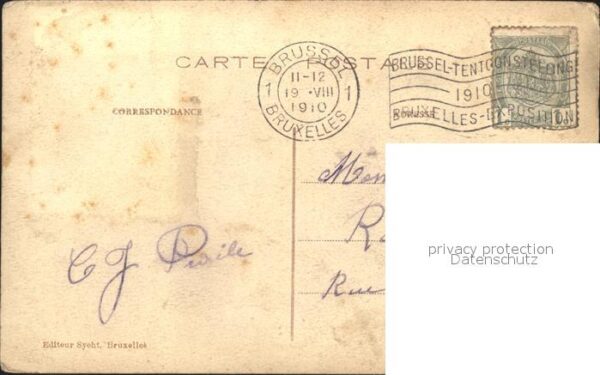 CARTE POSTA
BRUSSEL
11-12
1 19 ·VIII 1
1910
BRUXELLES
BRUSSEL-TENTOONSTELLING
1910
BRUXELLES-EXPOSITION
CORRESPONDANCE
ADRESSE
Rue
privacy protection
Datenschutz
Editeur Sycht, Bruxelles